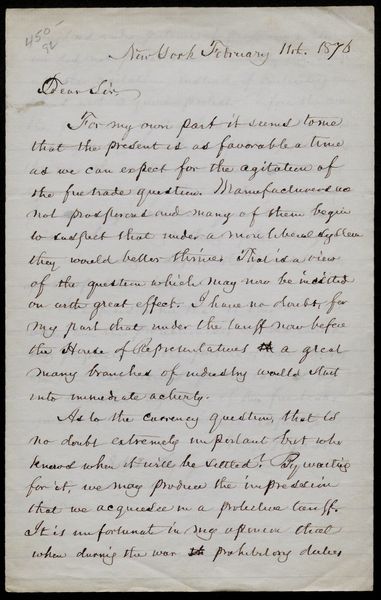 450
New York February 11th. 1876
Dear Sir,
For my own part it seems to me
that the present is as favorable a time
as we can expect for the agitation of
the free trade question. Manufacturers are
not prosperous and many of them begin
to suspect that under a more liberal system
they would better thrive. That is a view
of the question which may now be insisted
on with great effect. I have no doubt, for
my part that under the tariff now before
the House of Representatives a great
many branches of industry would start
into immediate activity.
As to the currency question, that is
no doubt extremely important but who
knows when it will be settled? By waiting
for it, we may produce the impression
that we acquiesce in a protective tariff.
It is unfortunate in my opinion that
when during the war prohibitory duties